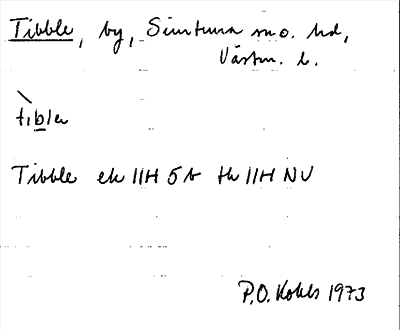 Tibble, by, Simtuna sn o. hd,
Västm. l.
tiblə
Tibble ek 11H 5b tk 11H NV
P.O. Kohls 1973